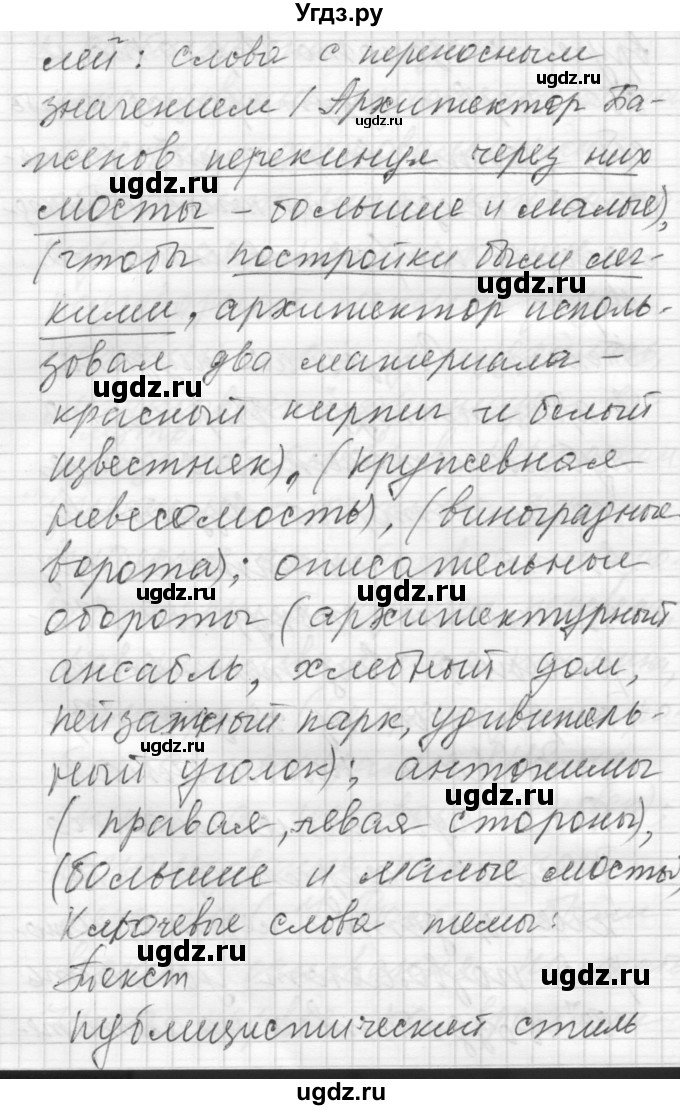 Угдз.ру
лей: слова с переносным
ugdz.ru
значением (Архитектор Ба-
ugdz.ru
женов перекинул через них
ugdz.ru
мосты – большие и малые),
(чтобы постройки были лег-
ugdz.ru
кими, архитектор исполь-
зовал два материала –
ugdz.ru
красный кирпич и белый
известняк), (кружевная
невесомость), (виноградные
ворота); описательные
ugdz.ru ugdz.ru
обороты (архитектурный
ансабль, хлебный дом,
пейзажный парк, удивитель-
ugdz.ru
ный уголок); антонимы
ugdz.ru
(правая, левая стороны),
(большие и малые мосты)
Ключевые слова темы:
ugdz.ru
Текст
ugdz.ru
публицистический стиль
ugdz.ru